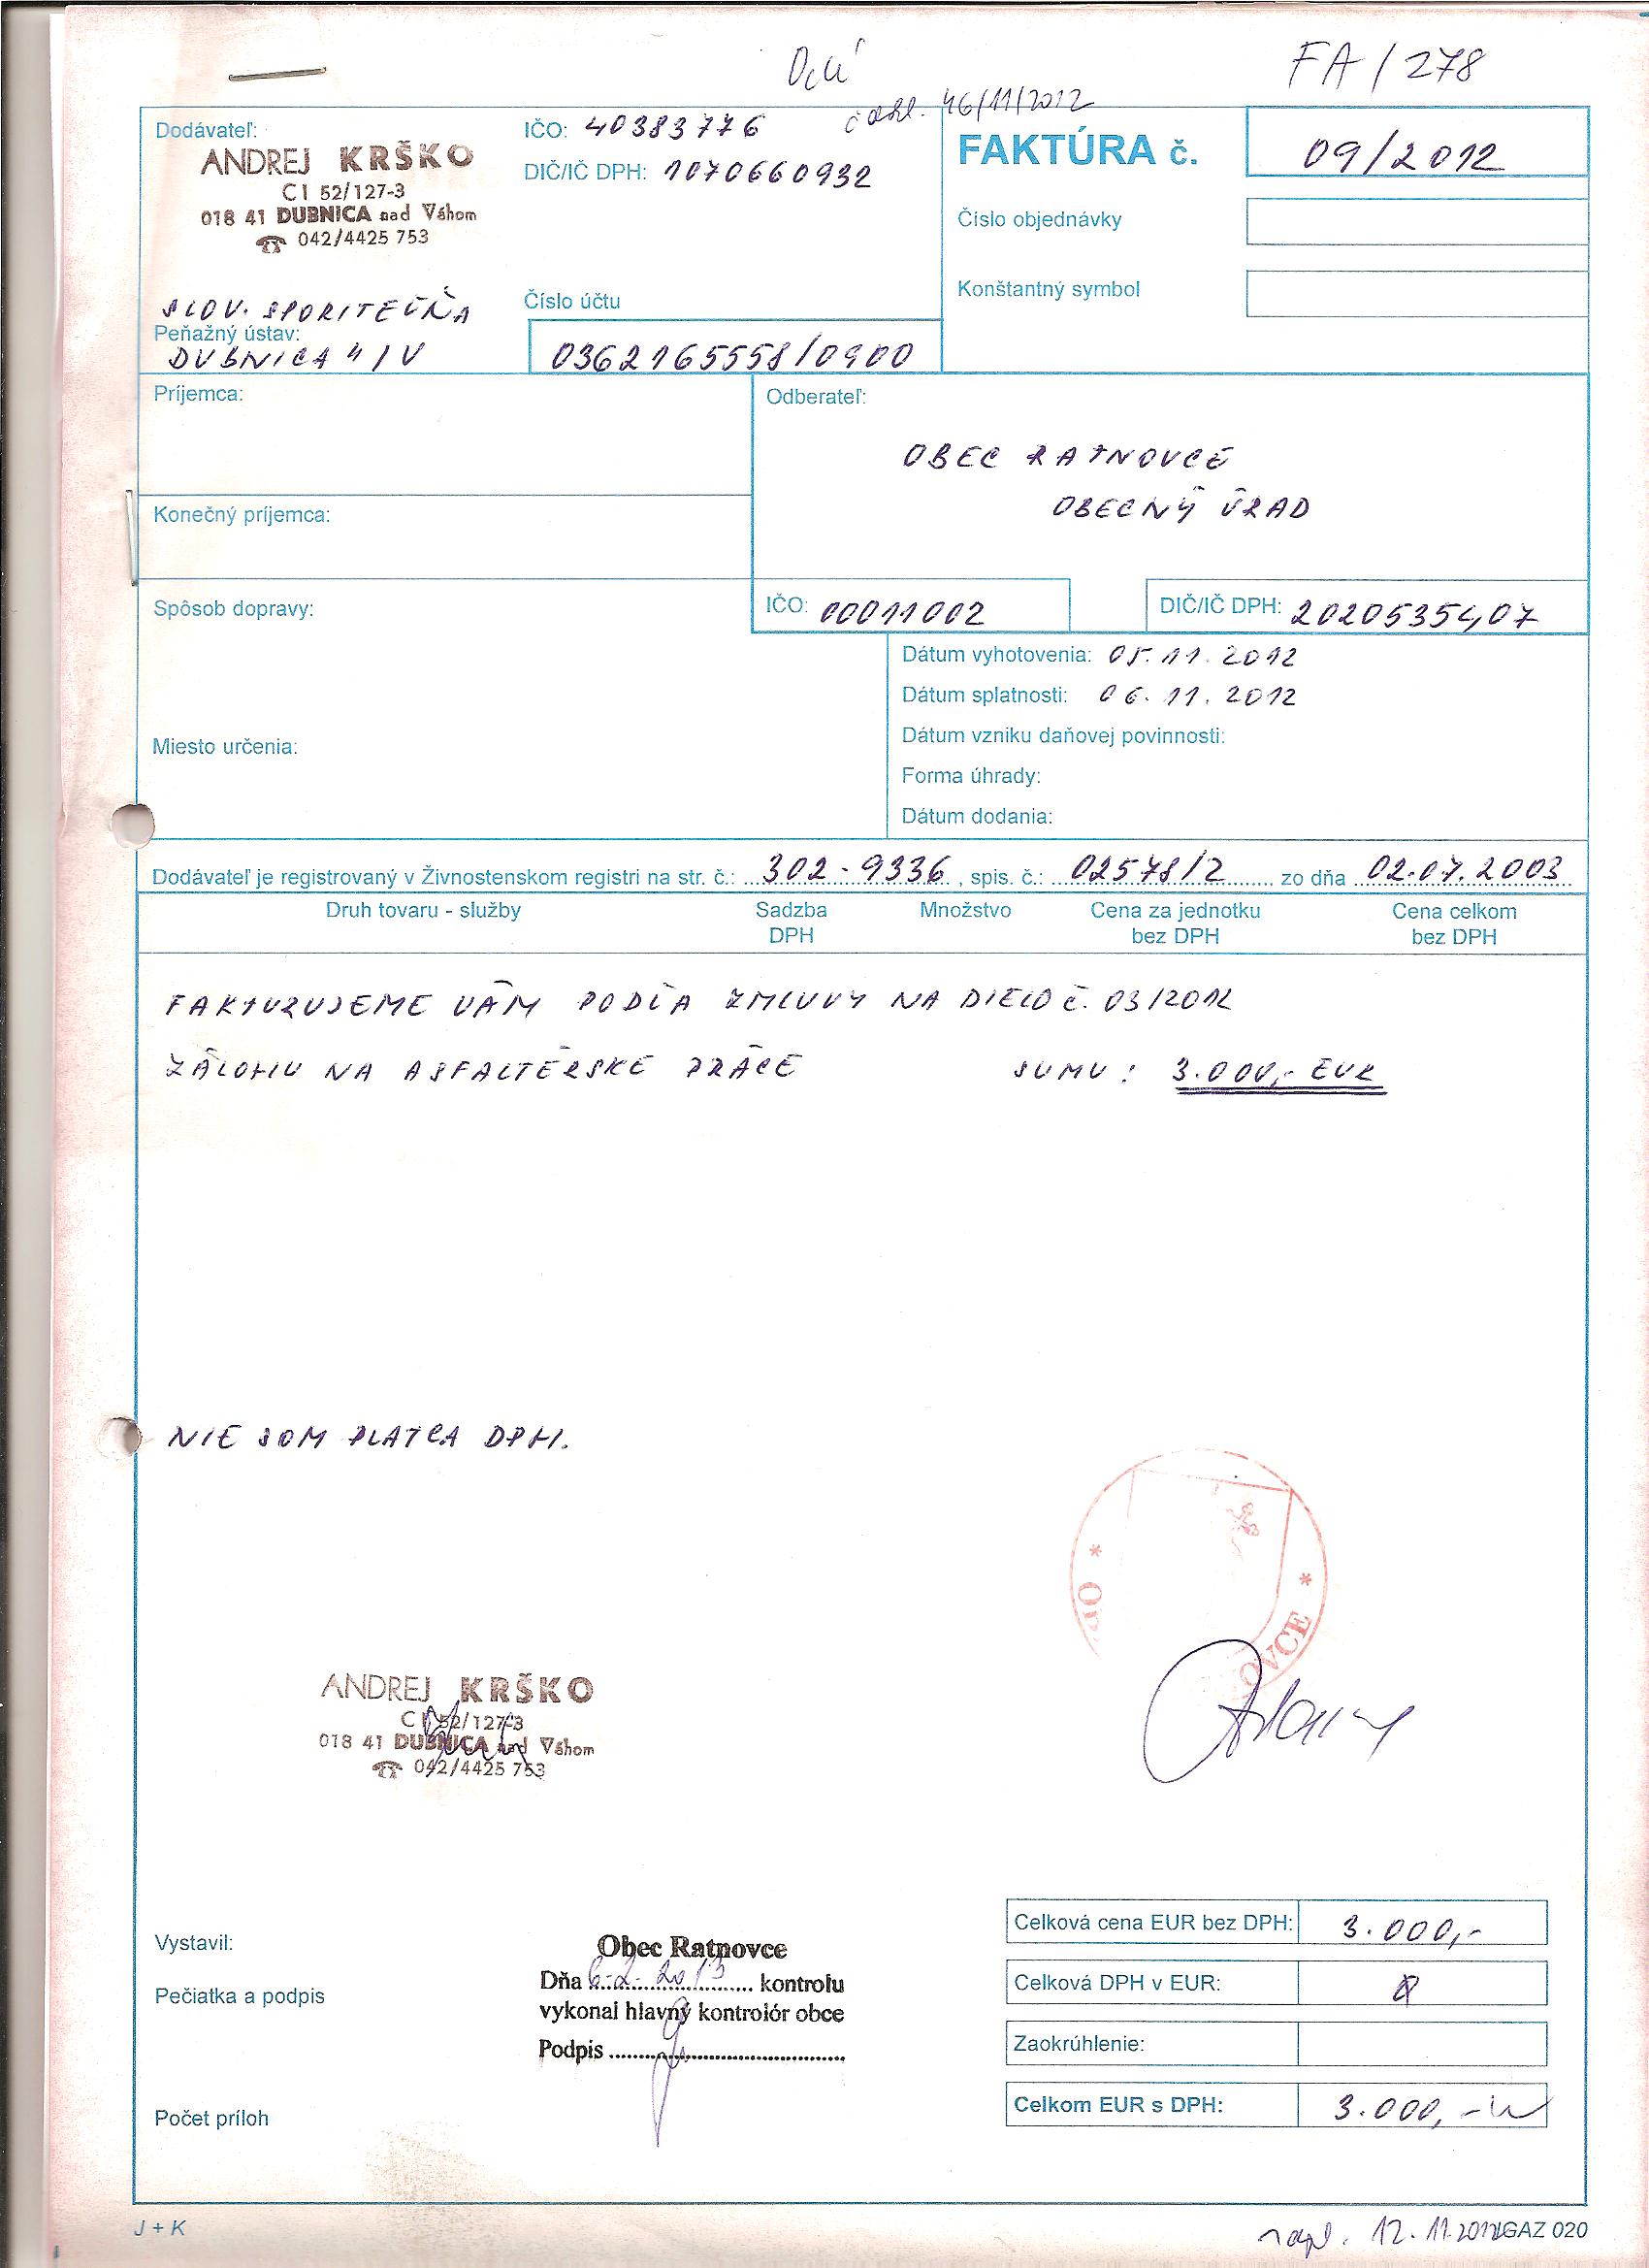 FA/278
46/11/2012
Dodávateľ:
ANDREJ KRŠKO
C I 52/127-3
018 41 DUBNICA nad Váhom
☎ 042/4425 753
IČO: 40383776
DIČ/IČ DPH: 1070660932
FAKTÚRA č. 09/2012
Číslo objednávky
Konštantný symbol
SLOV. SPORITEĽŇA
Peňažný ústav:
DUBNICA n/V
Číslo účtu
0362165558/0900
Príjemca:
Konečný príjemca:
Odberateľ:
OBEC RATNOVCE
OBECNÝ ÚRAD
IČO: 00011002
DIČ/IČ DPH: 2020535407
Spôsob dopravy:
Miesto určenia:
Dátum vyhotovenia: 05.11.2012
Dátum splatnosti: 06.11.2012
Dátum vzniku daňovej povinnosti:
Forma úhrady:
Dátum dodania:
Dodávateľ je registrovaný v Živnostenskom registri na str. č.: 302-9336, spis. č.: 02578/2 zo dňa 02.07.2003
Druh tovaru - služby Sadzba DPH Množstvo Cena za jednotku bez DPH Cena celkom bez DPH
FAKTURUJEME VÁM PODĽA ZMLUVY NA DIELO č. 03/2012
ZÁLOHU NA ASFALTÉRSKÉ PRÁCE SUMU: 3.000,- EUR
NIE SOM PLATCA DPH.
OVCE
ANDREJ KRŠKO
C I 52/127-3
018 41 DUBNICA nad Váhom
☎ 042/4425 753
Vystavil:
Pečiatka a podpis
Počet príloh
Obec Ratnovce
Dňa 6.2.2013 kontrolu
vykonal hlavný kontrolór obce
Podpis
Celková cena EUR bez DPH: 3.000,-
Celková DPH v EUR: 0
Zaokrúhlenie:
Celkom EUR s DPH: 3.000,-
J + K
12.11.2012
IGAZ 020